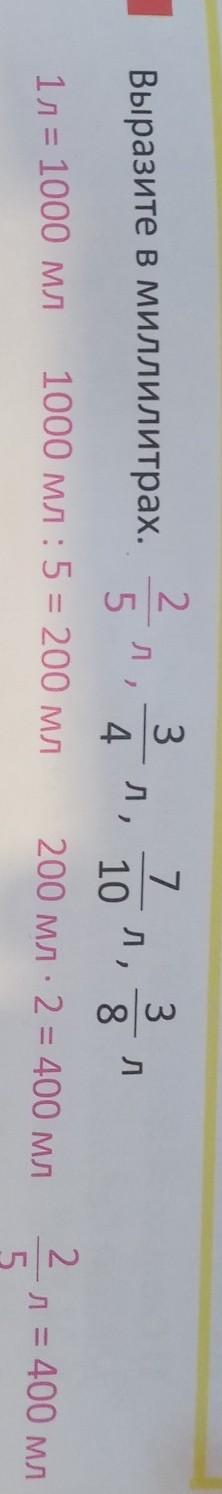 Выразите в миллилитрах. 2/5 л, 3/4 л, 7/10 л, 3/8 л
1 л = 1000 мл 1000 мл : 5 = 200 мл 200 мл · 2 = 400 мл 2/5 л = 400 мл